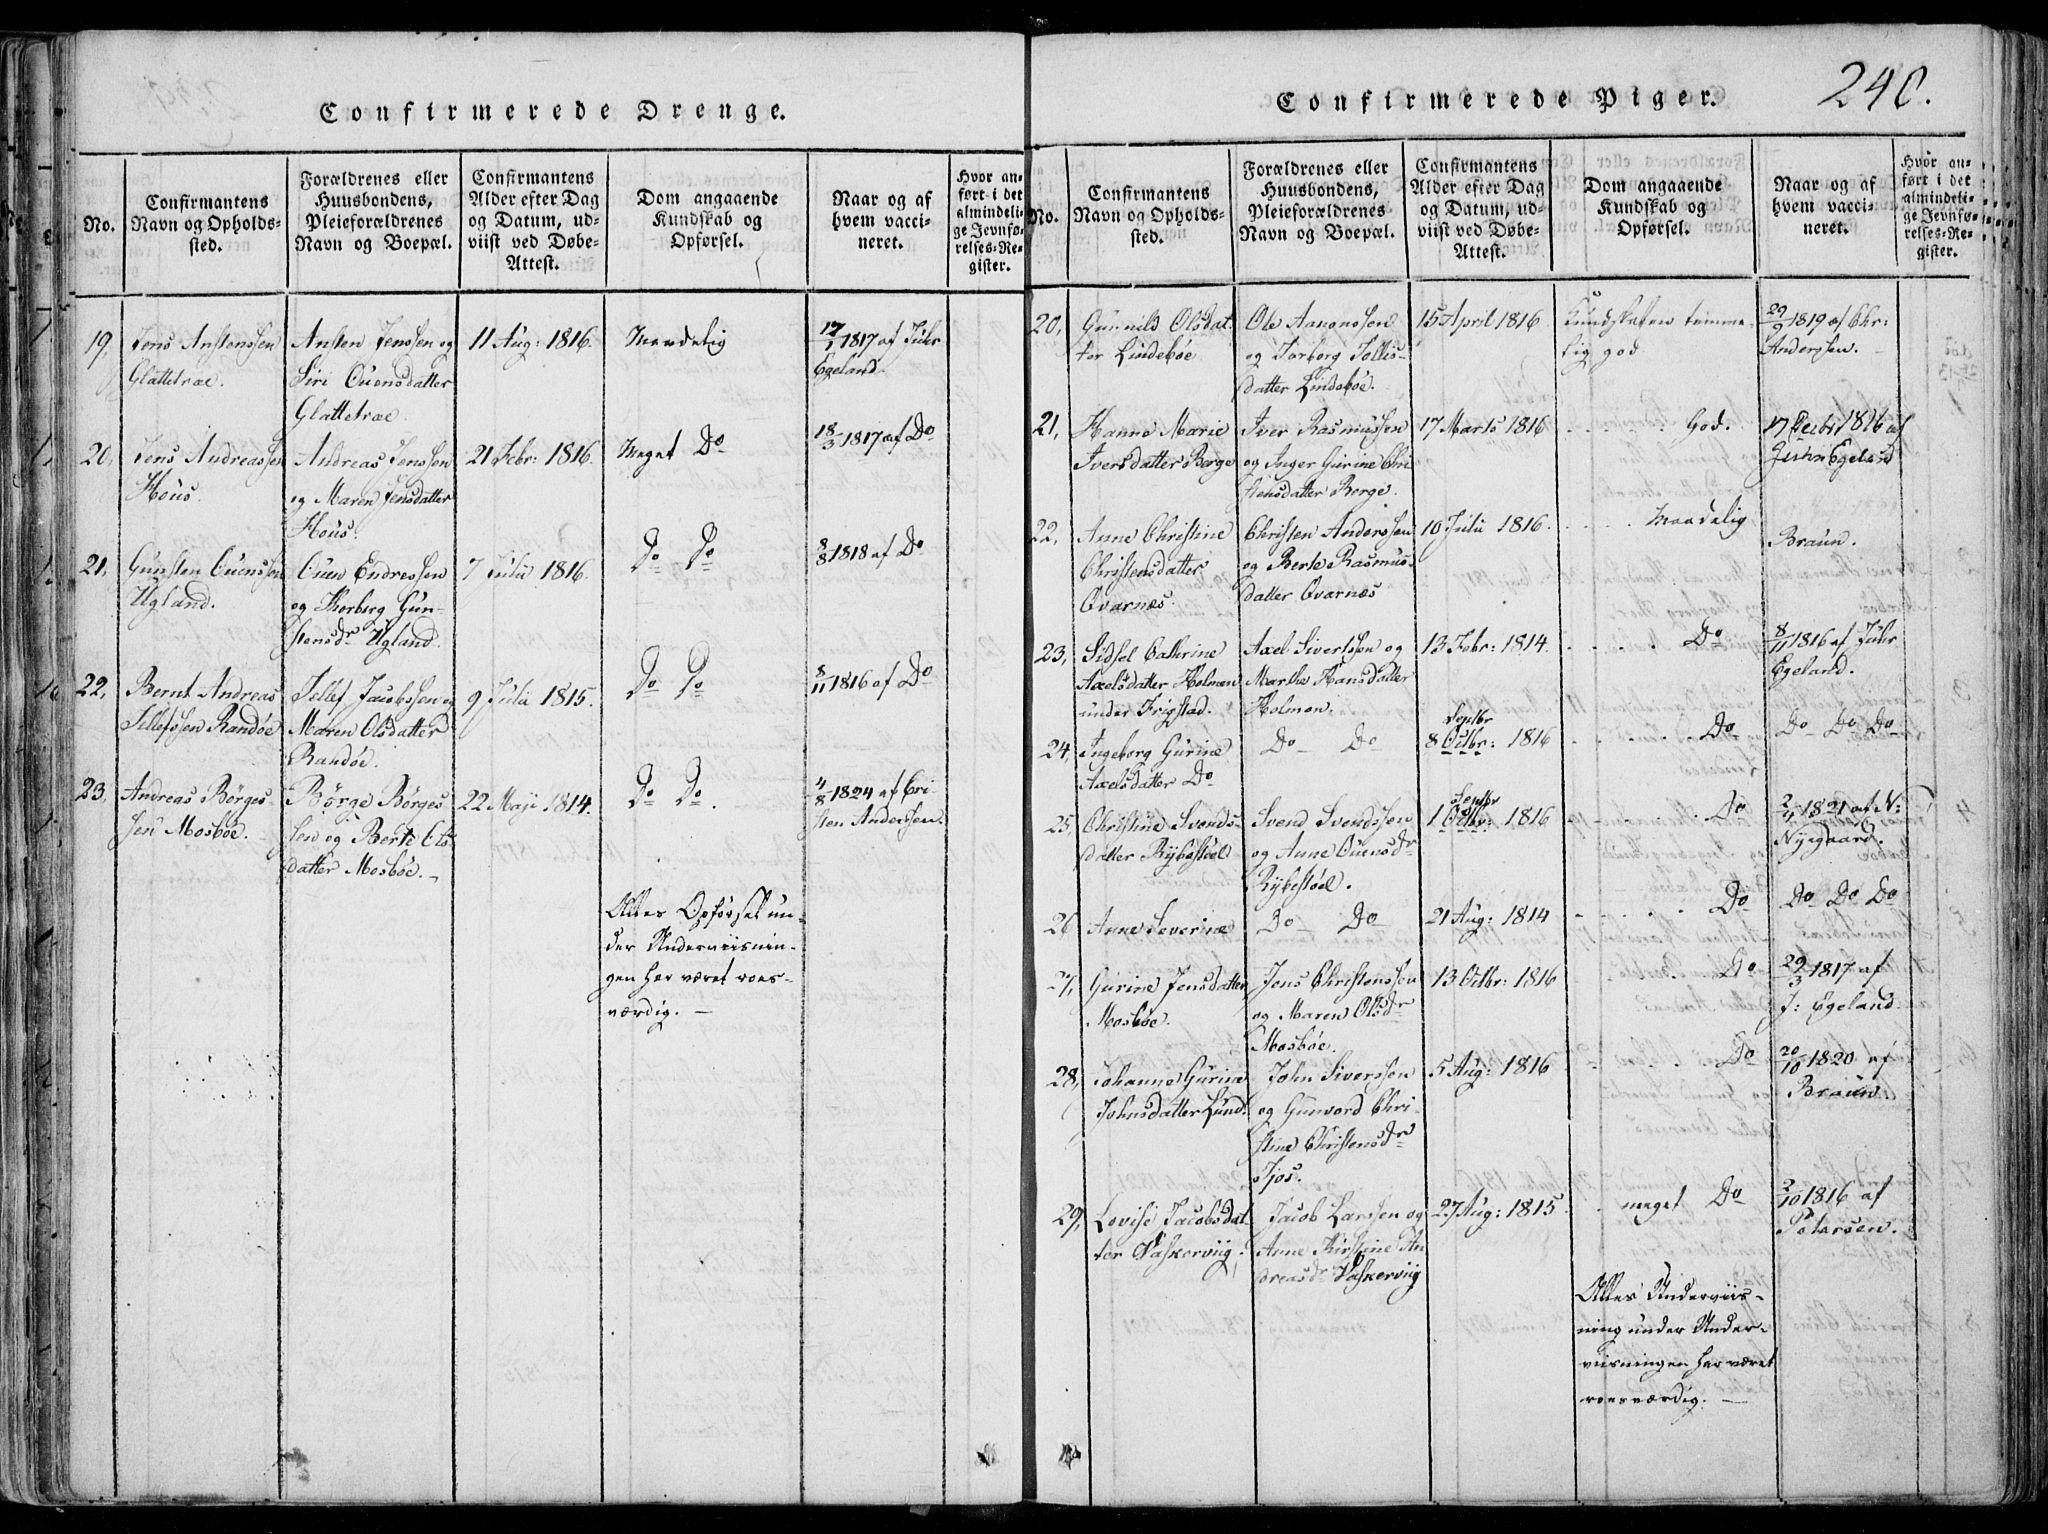 Confirmerede Drenge.
No.
Confirmantens
Navn og Opholds-
sted.
Forældrenes eller
Huusbondens,
Pleieforældrenes
Navn og Boepæl.
Confirmantens
Alder efter Dag
og Datum, ud-
viist ved Døbe-
Attest.
Dom angaaende
Kundskab og
Opførsel.
Naar og af
hvem vacci-
neret.
Hvor an-
ført i det
almindeli-
ge Jevnfø-
relses-Re-
gister.
19,
Jens Anstenssen
Glattetræ.
Ansten Jenssen og
Siri Ouensdatter
Glattetræ
11 Aug: 1816.
Maadelig
17/1 1817 af Juhr
Egeland
20,
Jens Andreassen
Hous.
Andreas Jenssen
og Maren Jensdatter
Hous.
21 Febr: 1816.
Meget Do
18/3 1817 af Do
21,
Gunsten Ouenssen
Ugland.
Ouen Endressen
og Thorborg Gun-
stensdr Ugland.
7 Julii 1816.
Do Do
8/8 1818 af Do
22,
Bernt Andreas
Tellefssen Randøe
Tellef Jacobssen og
Maren Olsdatter
Randøe.
9 Julii 1815.
Do Do
8/11 1816 af Do
23,
Andreas Børges-
sen Mosbøe.
Børge Børges-
sen og Berte Ols-
datter Mosbøe.
22 Maji 1814.
Do Do.
4/8 1824 af Cri-
sten Anderssen.
Alles Opførsel un-
der Underviisnin-
gen har været roes-
værdig.
Confirmerede Piger.
240.
No.
Confirmantens
Navn og Opholds-
sted.
Forældrenes eller
Huusbondens,
Pleieforældrenes
Navn og Boepæl.
Confirmantens
Alder efter Dag
og Datum, ud-
viist ved Døbe-
Attest.
Dom angaaende
Kundskab og
Opførsel.
Naar og af
hvem vacci-
neret.
Hvor an-
ført i det
almindeli-
ge Jevnfø-
relses-Re-
gister.
20,
Gunnild Olsdat-
ter Lindebøe
Ole Aanonssen
og Torborg Tollis-
datter Lindebøe.
15 April 1816
Kundskaben temme-
lig god
29/9 1819 af Chr:
Anderssen.
21,
Hanne Marie
Iversdatter Berge
Iver Rasmussen
og Inger Gurine Chri-
stensdatter Berge.
17 Marts 1816
God.
17 1816 af
Juhr Egeland
22,
Anne Christine
Christensdatter
Qvarnæs.
Christen Anderssen
og Berte Rasmus-
datter Qvarnæs
10 Julii 1816.
Maadelig
Braun.
23,
Sidsel Cathrine
Axelsdatter Holmen
under Frigstad.
Axel Sivertssen og
Marthe Hansdatter
Holmen.
13 Febr: 1814.
Do
8/11 1816 af Juhr
Egeland.
24,
Ingeborg Gurine
Axelsdatter Do
Do Do
Septbr
8 Octbr: 1816
Do
Do Do Do
25,
Christine Svends-
datter Rybestøel
Svend Svendssen
og Anne Ouensdr
Rybestøel.
Septbr
1 Octbr: 1816
Do
2/4 1821 af N:
Nyegaard.
26
Anne Severine
Do Do
21 Aug: 1814
Do
Do Do Do
27,
Gurine Jensdatter
Mosbøe.
Jens Christenssen
og Maren Olsdr
Mosbøe.
13 Octbr: 1816
Do
29/3 1817 af
J: Egeland.
28,
Johanne Gurine
Johnsdatter Lund.
John Siverssen
og Gunvord Chri-
stine Christensdr
Tjos.
5 Aug: 1816
Do
20/10 1820 af
Braun
29,
Lovise Jacobsdat-
ter Vaskerviig.
Jacob Larssen og
Anne Kirstine An-
dreasdr Vaskerviig
27 Aug: 1815.
meget Do
2/10 1816 af
Peterssen.
Alles Underviis-
ning under Under-
viisningen har været
roesværdig.